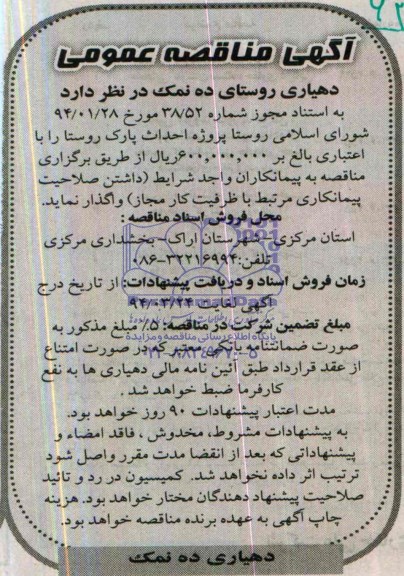 آگهی مناقصه عمومی
دهیاری روستای ده نمک در نظر دارد
به استناد مجوز شماره ۳۸/۵۲ مورخ ۹۴/۰۱/۲۸
شورای اسلامی روستا پروژه احداث پارک روستا را با
اعتباری بالغ بر ۶۰۰,۰۰۰,۰۰۰ریال از طریق برگزاری
مناقصه به پیمانکاران واجد شرایط (داشتن صلاحیت
پیمانکاری مرتبط با ظرفیت کار مجاز) واگذار نماید.
محل فروش اسناد مناقصه :
استان مرکزی- شهرستان اراک- بخشداری مرکزی
تلفن:۳۲۲۱۶۹۹۴-۰۸۶
زمان فروش اسناد و دریافت پیشنهادات: از تاریخ درج
آگهی لغایت ۹۴/۰۳/۲۴
پایگاه اطلاع رسانی مناقصه و مزایده
مبلغ تضمین شرکت در مناقصه: ۵٪ مبلغ مذکور به
صورت ضمانتنامه بانکی معتبر که در صورت امتناع
از عقد قرارداد طبق آئین نامه مالی دهیاری ها به نفع
کارفرما ضبط خواهد شد .
مدت اعتبار پیشنهادات ۹۰ روز خواهد بود.
به پیشنهادات مشروط، مخدوش ، فاقد امضاء و
پیشنهاداتی که بعد از انقضا مدت مقرر واصل شود
ترتیب اثر داده نخواهد شد. کمیسیون در رد و تائید
صلاحیت پیشنهاد دهندگان مختار خواهد بود. هزینه
چاپ آگهی به عهده برنده مناقصه خواهد بود.
دهیاری ده نمک